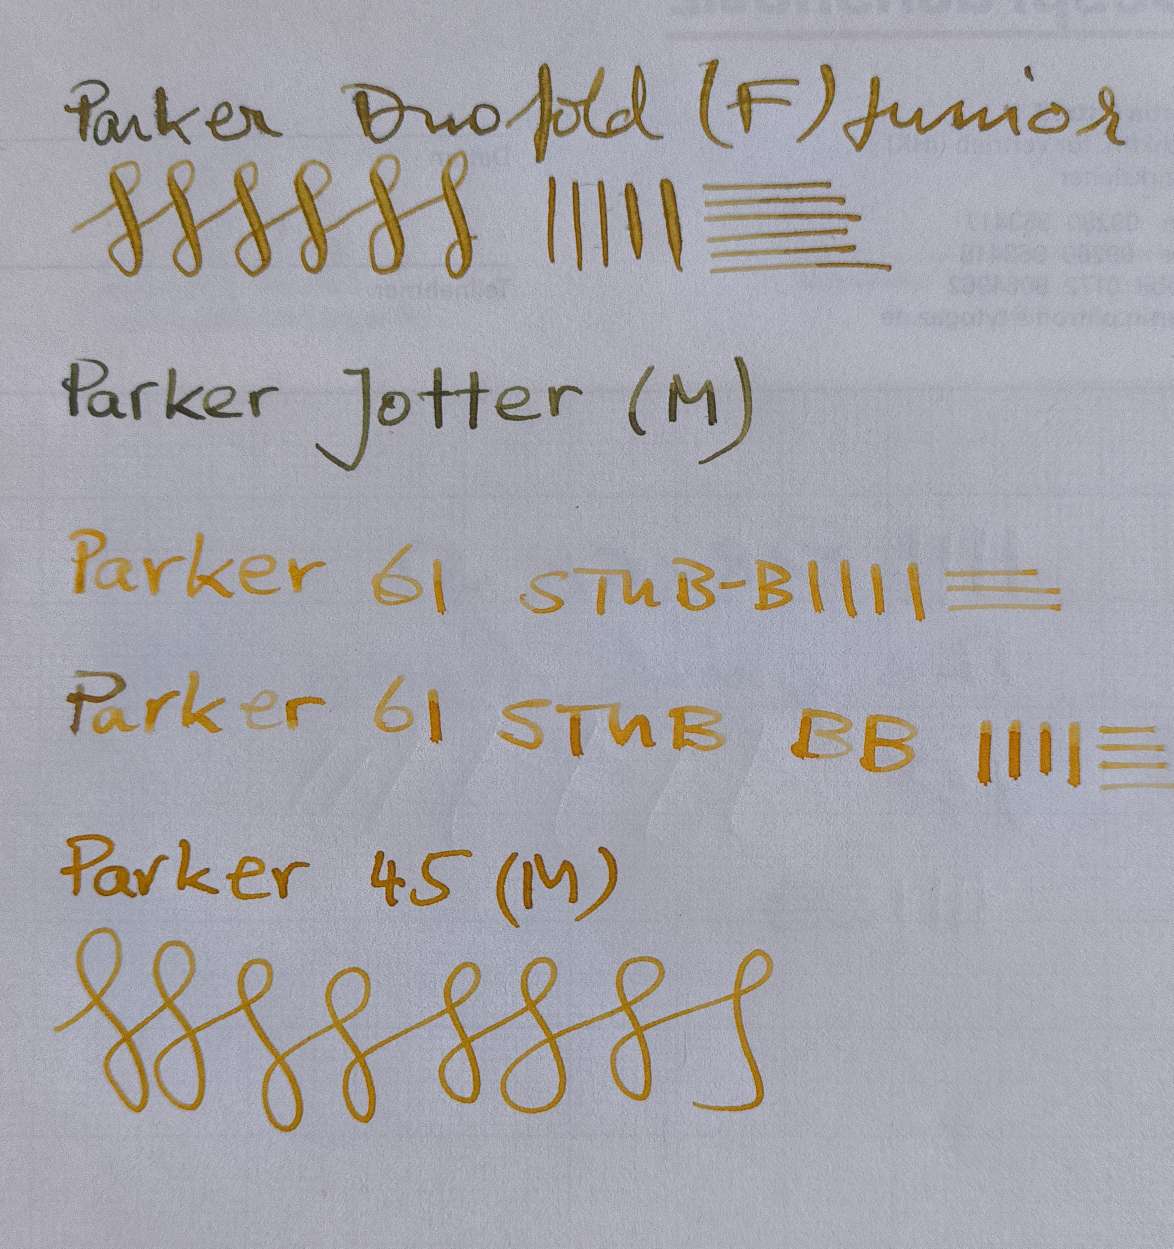 Parker Duofold (F) Junior
Parker Jotter (M)
Parker 61 STUB-B
Parker 61 STUB BB
Parker 45 (M)
Teilnehmer